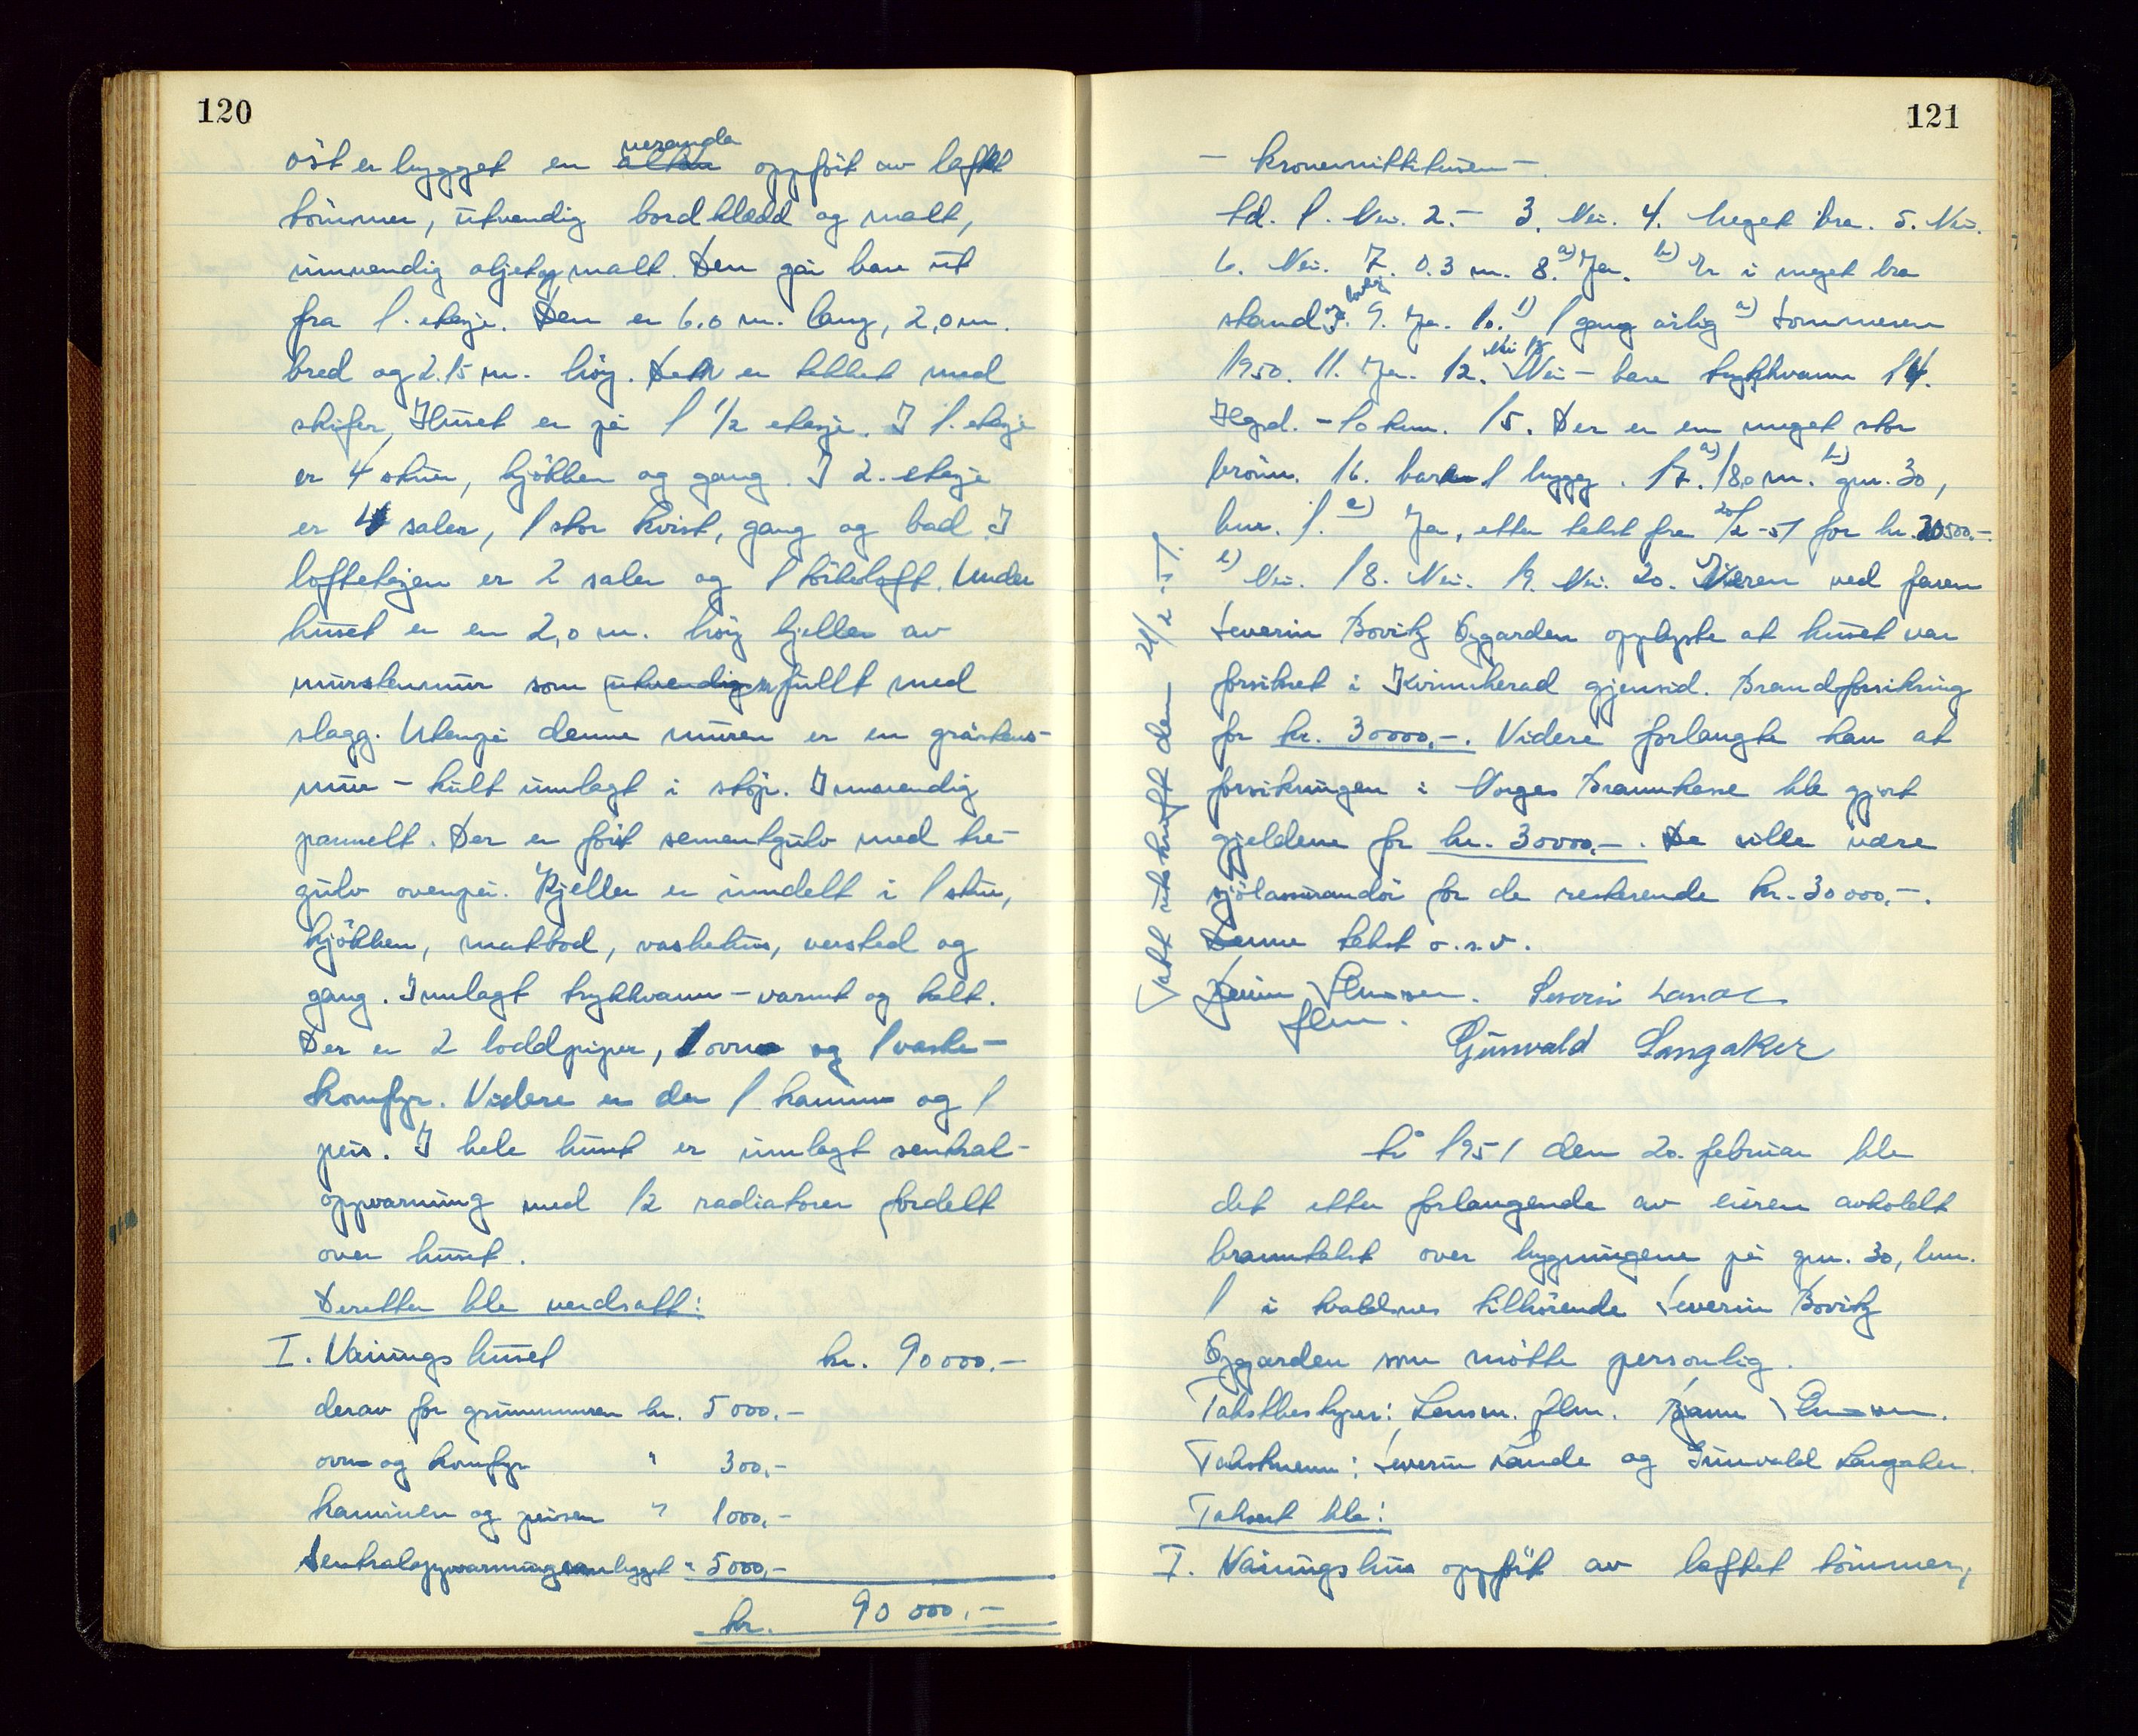 120
veranda
öst er bygget en altan oppfört av laftet
tömmer, utvendig bordklædd og malt,
innvendig oljet og malt. Den går bare ut
fra 1. etasje. Den er 6.0 m. lang, 2,0 m.
bred og 2.15 m. höy. Den er tekket med
skifer. Huset er på 1 1/2 etasje. I 1. etasje
er 4 stuer, kjökken og gang. I 2. etasje
er 4 saler, 1 stor kvist, gang og bad. I
loftetasjen er 2 saler og 1 törkeloft. Under
huset er en 2,0 m. höy kjeller av
murstenmur som utvendig fullt med
slagg. Utenpå denne muren er en gråstens-
mur - kult innlagt i stöp. Innvendig
pannelt. Der er fört sementgulv med tre-
gulv ovenpå. Kjeller er inndelt i 1 stue,
kjökken, matbod, vaskehus, versted og
gang. Innlagt trykkvann - varmt og kalt.
Der er 2 loddpiper, 1 ovn og 1 vaske-
komfyr. Videre er der 1 kamin og 1
peis. I hele huset er innlagt sentral-
oppvarming med 12 radiatorer fordelt
over huset.
Deretter ble verdsatt:
I. Våningshuset kr. 90 000.-
derav for grunnmuren kr. 5 000.-
ovn og komfyr " 300,-
kaminen og peisen " 1000,-
Sentraloppvarmingsanlegget " 5 000,-
kr. 90 000.-
121
- kronernittitusen -.
Ad. 1. Nei. 2. - 3. Nei. 4. Meget bra. 5. Nei.
6. Nei. 7. 0.3 m. 8. a) Ja. b) Er i meget bra
stand og lovlig. 9. Ja. 10. 1) 1 gang årlig a) Sommeren
1950. 11. Ja. 12. Nei 13. Nei - bare trykkvann 14.
Hgsd. - 10 km. 15. Der er en meget stor
brönn. 16. bare 1 bygg. 17. a) 18,0 m. b) gnr. 30,
bnr. 1. c) Ja, etter takst fra 20/2 -51 for kr. 30500.-.
e) Nei. 18. Nei. 19. Nei. 20. Eieren ved faren
Severin Bovitz Eygarden opplyste at huset var
forsikret i Kvinnherad gjensid. Brandforsikring
for kr. 30000,-. Videre forlangte han at
forsikringen i Norges Brannkasse ble gjort
gjeldene for kr. 30000,-. De ville være
sjölassurandör for de resterende kr. 30 000,-.
Denne takst o.s.v.
Severin
flm. Gunvald Langaker
Tatt utskrift den 21/2 - 51.
År 1951 den 20. februar ble
det etter forlangende av eieren avholdt
branntakst over bygningene på gnr. 30, bnr.
1 i tilhörende Severin Bovitz
Eygarden som mötte personlig.
Takstbestyrer: Lensm. flm. Bjarne
Takstmenn: Severin Sande og Gunvald Langaker.
Taksert ble:
I. Våningshus oppfört av laftet tömmer,